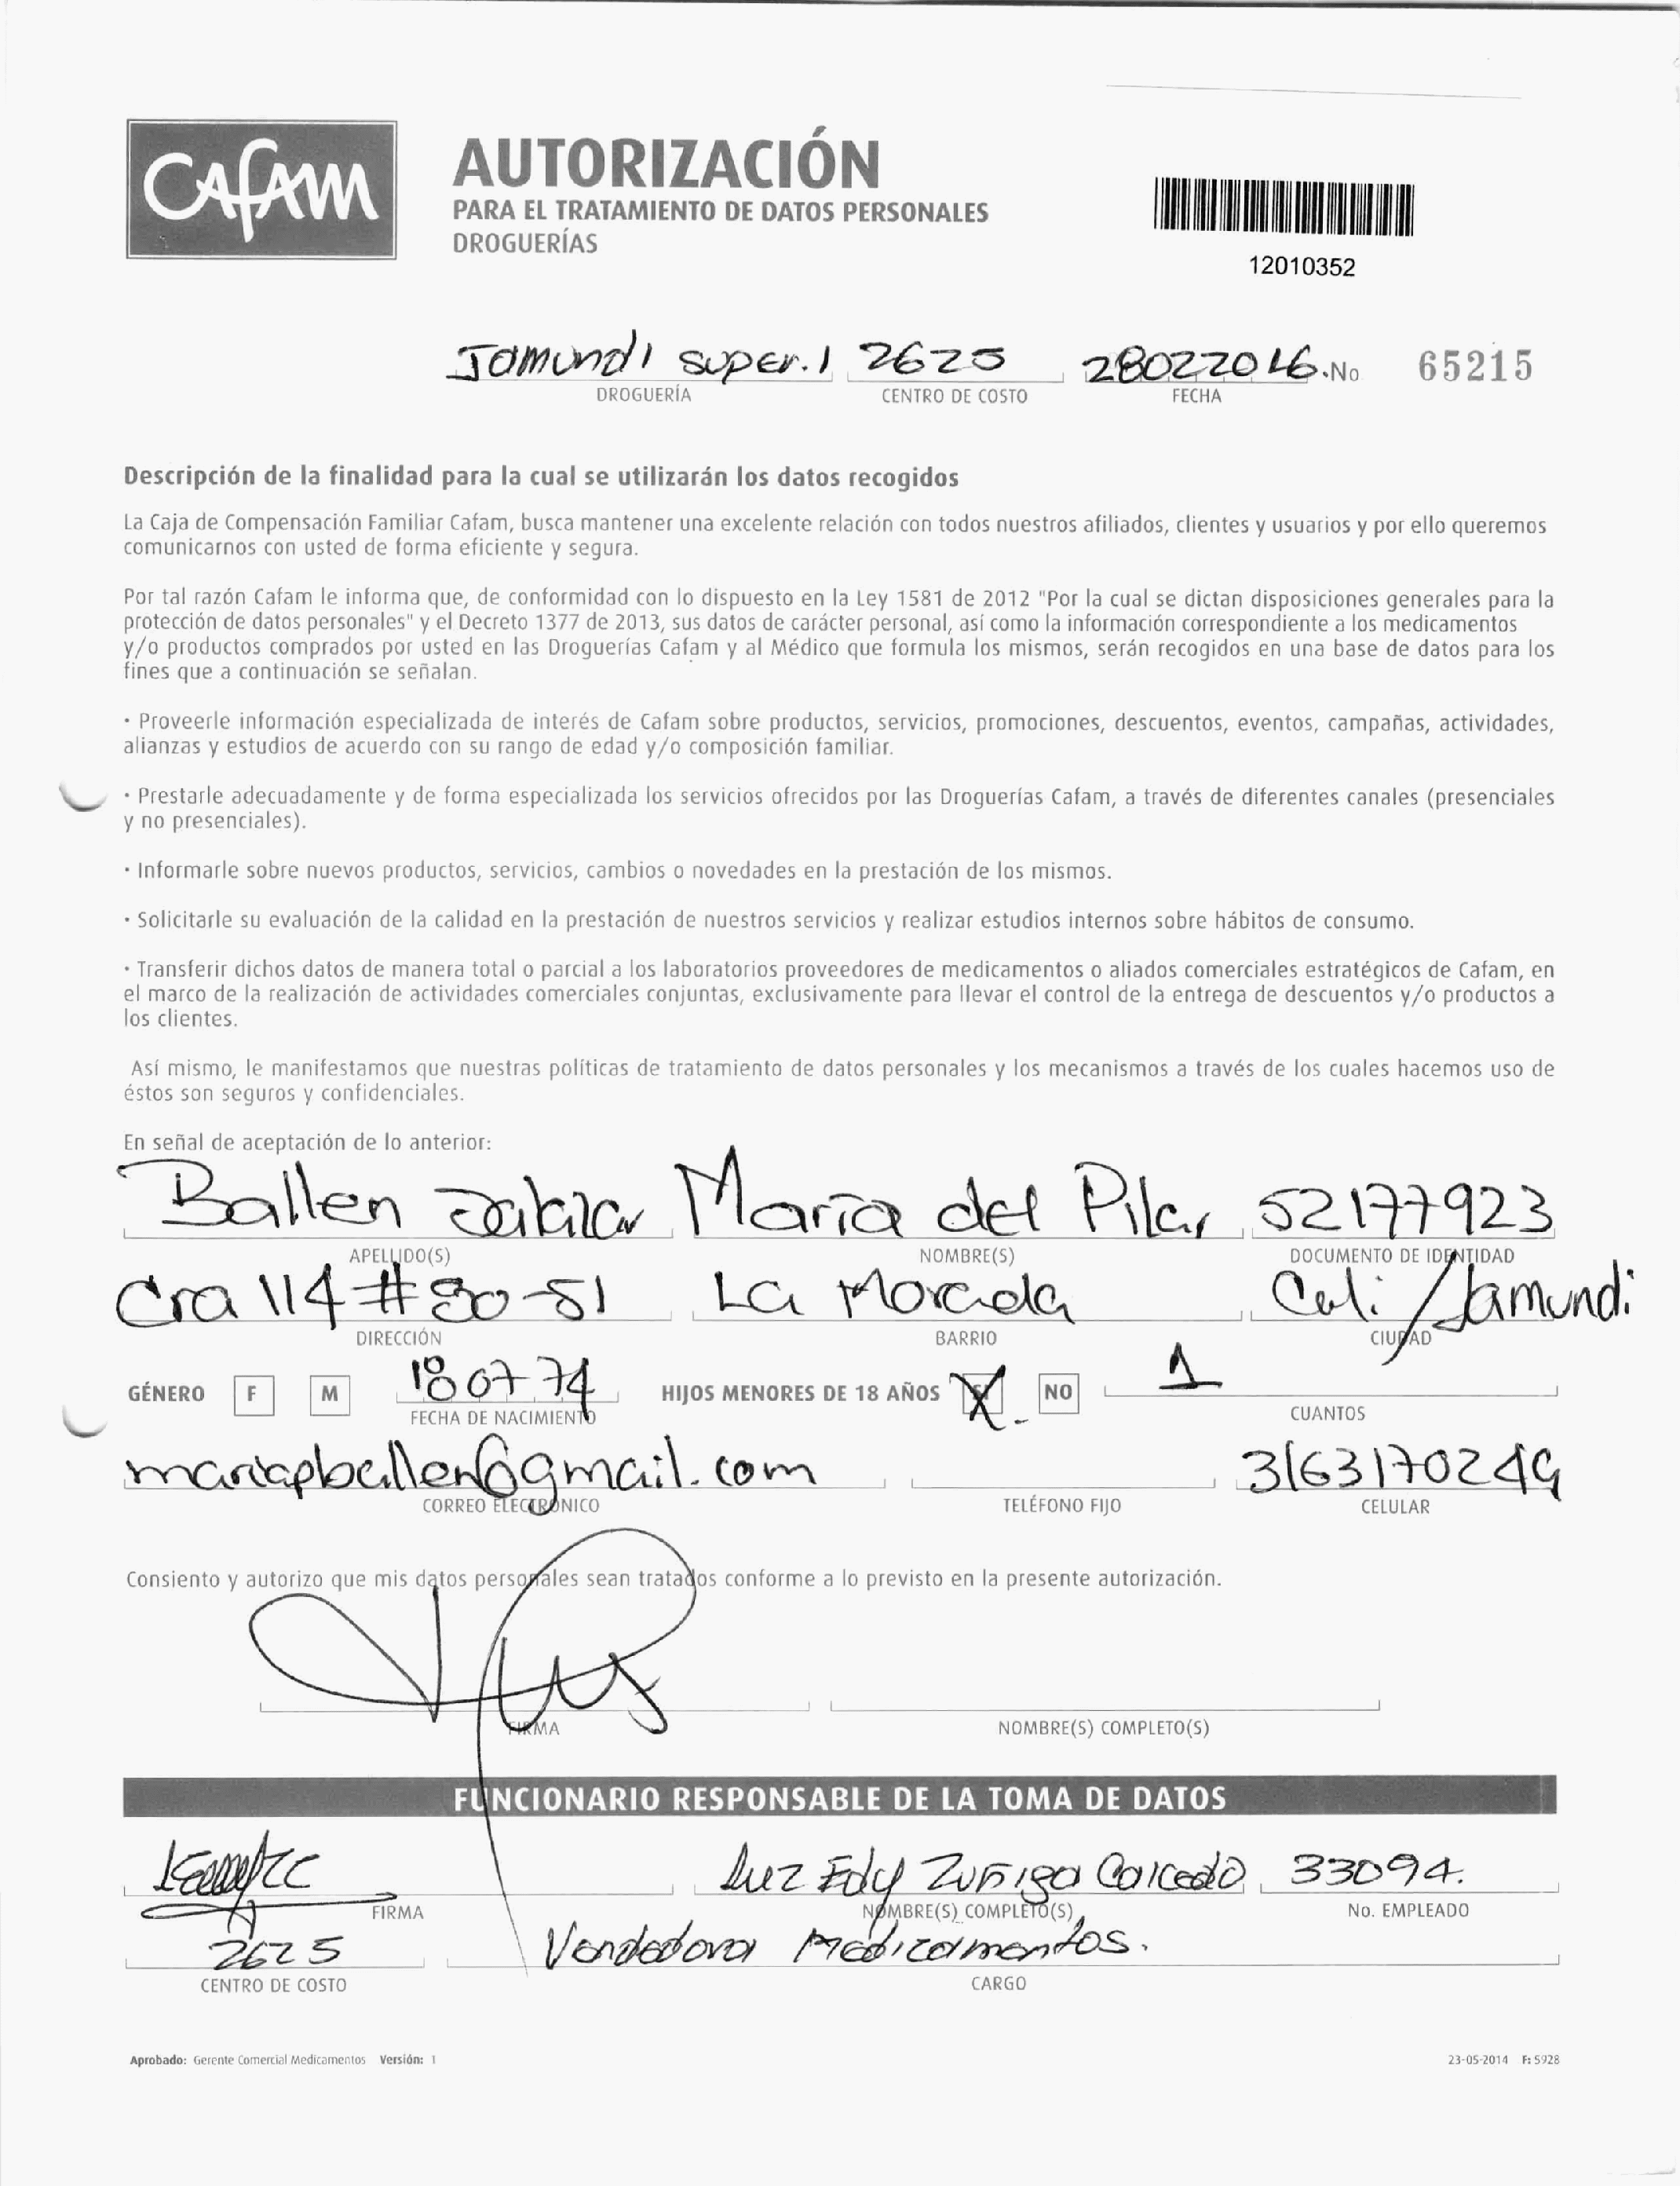 CAFAM
AUTORIZACIÓN
PARA EL TRATAMIENTO DE DATOS PERSONALES
DROGUERÍAS
12010352
Jamundi super.1 2625 28022016 .No 65215
DROGUERÍA CENTRO DE COSTO FECHA
Descripción de la finalidad para la cual se utilizarán los datos recogidos
La Caja de Compensación Familiar Cafam, busca mantener una excelente relación con todos nuestros afiliados, clientes y usuarios y por ello queremos
comunicarnos con usted de forma eficiente y segura.
Por tal razón Cafam le informa que, de conformidad con lo dispuesto en la Ley 1581 de 2012 "Por la cual se dictan disposiciones generales para la
protección de datos personales" y el Decreto 1377 de 2013, sus datos de carácter personal, así como la información correspondiente a los medicamentos
y/o productos comprados por usted en las Droguerías Cafam y al Médico que formula los mismos, serán recogidos en una base de datos para los
fines que a continuación se señalan.
· Proveerle información especializada de interés de Cafam sobre productos, servicios, promociones, descuentos, eventos, campañas, actividades,
alianzas y estudios de acuerdo con su rango de edad y/o composición familiar.
· Prestarle adecuadamente y de forma especializada los servicios ofrecidos por las Droguerías Cafam, a través de diferentes canales (presenciales
y no presenciales).
· Informarle sobre nuevos productos, servicios, cambios o novedades en la prestación de los mismos.
· Solicitarle su evaluación de la calidad en la prestación de nuestros servicios y realizar estudios internos sobre hábitos de consumo.
· Transferir dichos datos de manera total o parcial a los laboratorios proveedores de medicamentos o aliados comerciales estratégicos de Cafam, en
el marco de la realización de actividades comerciales conjuntas, exclusivamente para llevar el control de la entrega de descuentos y/o productos a
los clientes.
Así mismo, le manifestamos que nuestras políticas de tratamiento de datos personales y los mecanismos a través de los cuales hacemos uso de
éstos son seguros y confidenciales.
En señal de aceptación de lo anterior:
Ballen María del Pilar 52177923
APELLIDO(S) NOMBRE(S) DOCUMENTO DE IDENTIDAD
Cra 114 # 30-51 La Morada Cali/Jamundi
DIRECCIÓN BARRIO CIUDAD
GÉNERO F M 180774 HIJOS MENORES DE 18 AÑOS X NO 1
FECHA DE NACIMIENTO CUANTOS
mariapballen@gmail.com 3163170249
CORREO ELECTRÓNICO TELÉFONO FIJO CELULAR
Consiento y autorizo que mis datos personales sean tratados conforme a lo previsto en la presente autorización.
FIRMA NOMBRE(S) COMPLETO(S)
FUNCIONARIO RESPONSABLE DE LA TOMA DE DATOS
Luz Edy Zuñiga Caicedo 33094.
FIRMA NOMBRE(S) COMPLETO(S) No. EMPLEADO
2625 Vendedora Medicamentos.
CENTRO DE COSTO CARGO
Aprobado: Gerente Comercial Medicamentos Versión: 1 23-05-2014 F: 5928